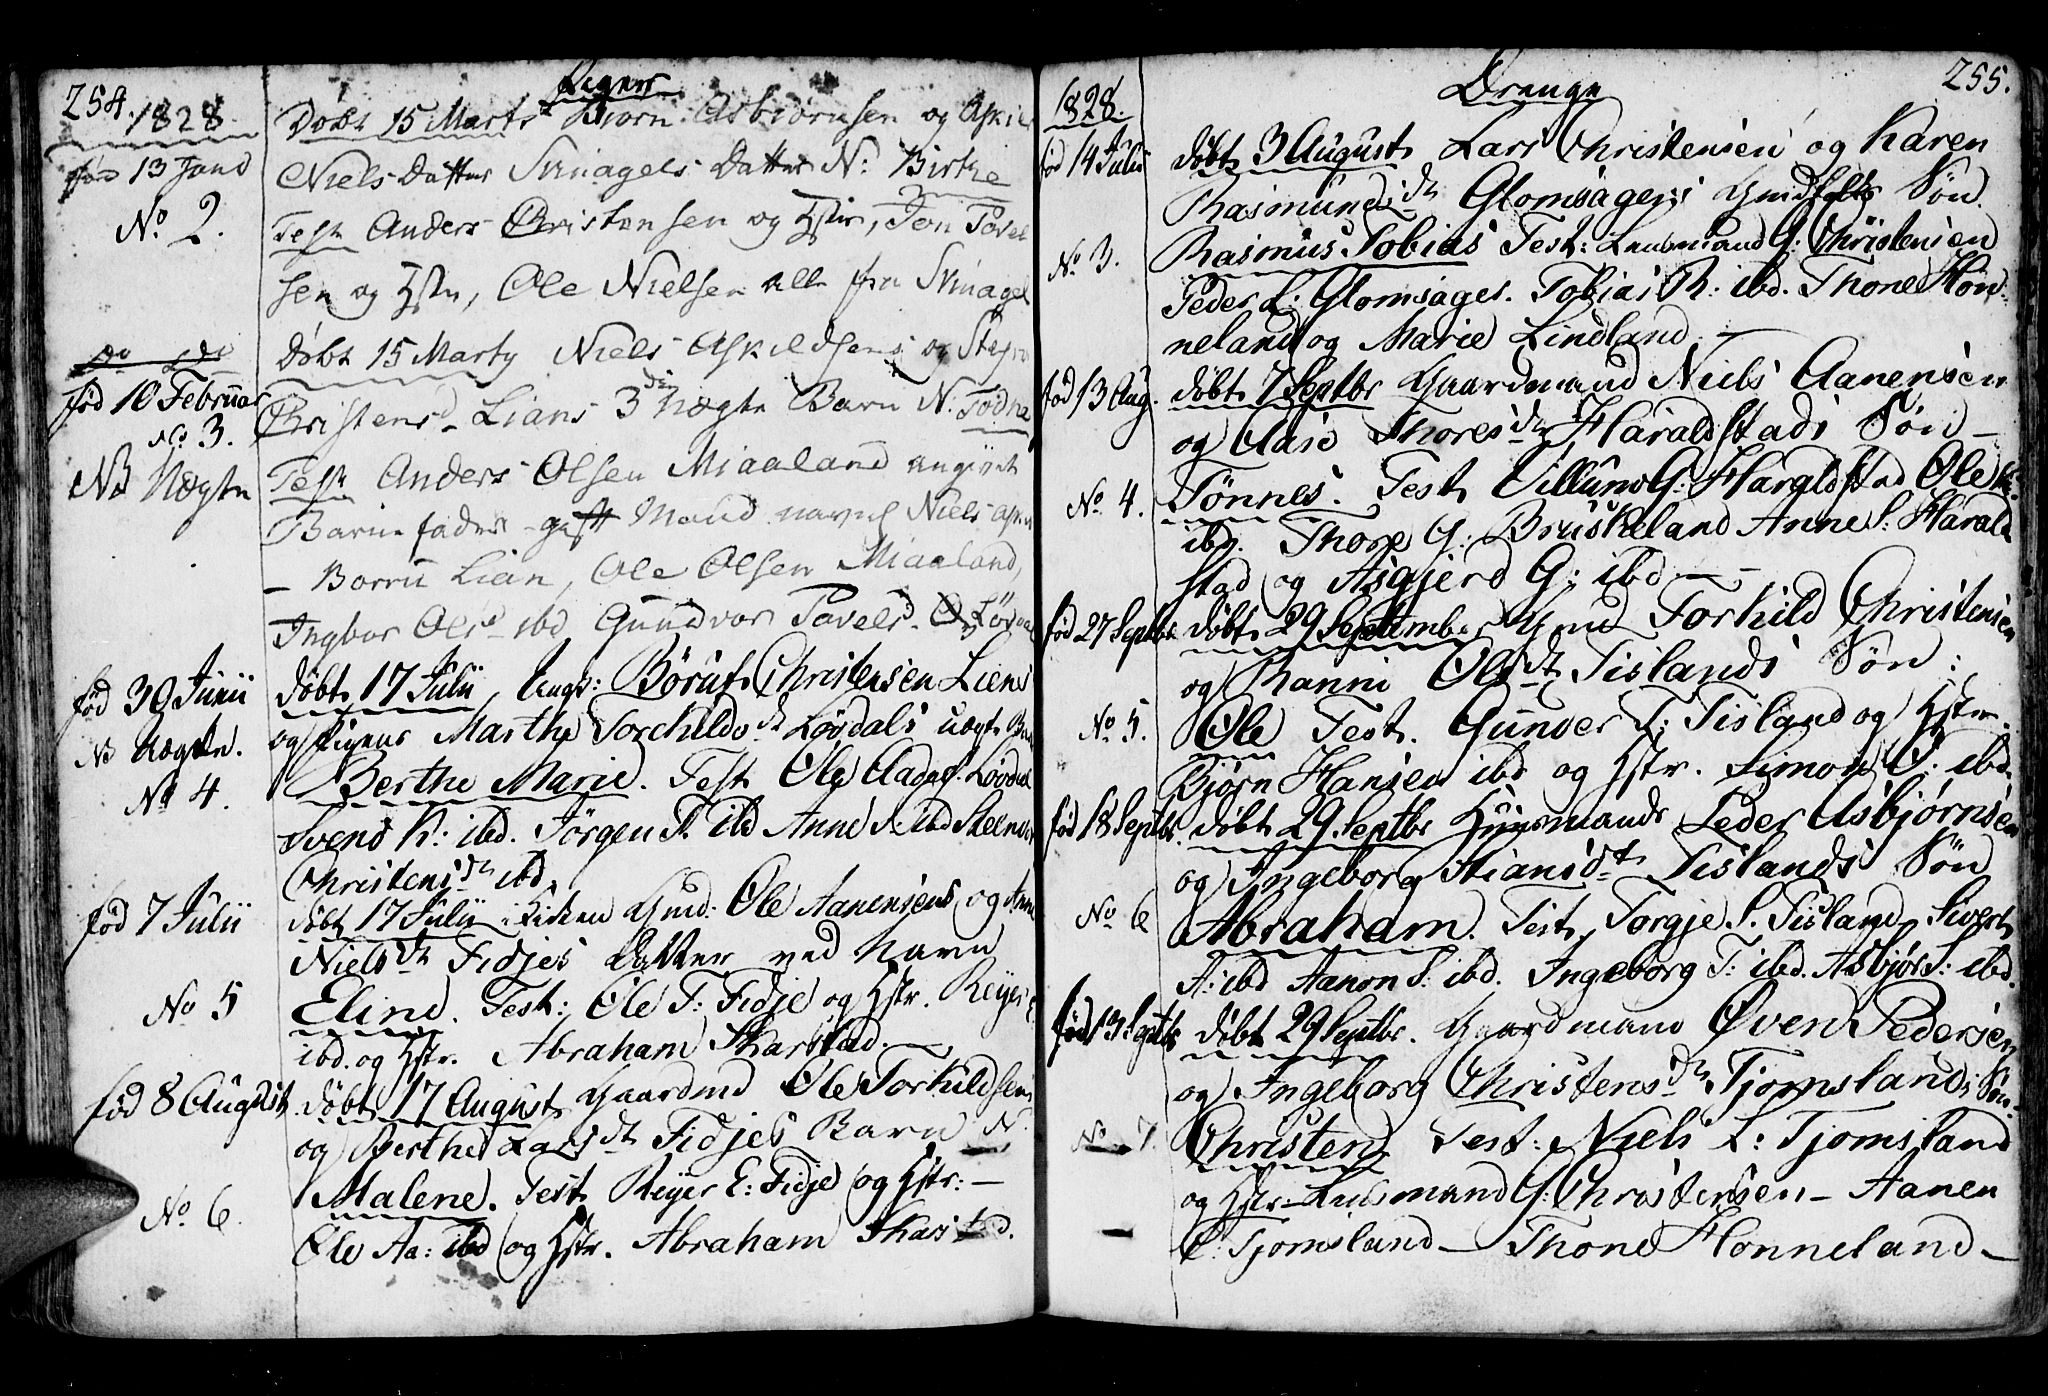 254. Piger
1828. Døbt 15 Marts Biørn Asbiørnsen og Askil
fød 13 Janu Niels Datter Svinagels Datter N: Birthe
No 2. Test Anders Christensen og Hstr, Jon Tavel
sen og Hstr, Ole Nielsen alle fra Svinagel
do do Døbt 15 Marty Niels Askildsens og
fød 10 Februar Christensd. Lians 3die Uægte Barn N. Tødne
No 3. Test Anders Olsen Miaaland angivet
NB Uægte Barnefader gift Mand navnl Niels
Lian, Ole Olsen Miaaland,
Ingbor Olsd ibd Gundvor Tavelsd.
fød 30 Junii døbt 17 Julii, Ungk: Børuf Christensen Liens
NB Uægte. og Pigens Marthe Torchildsdtr Løvdals uægt
No 4. Berthe Marie. Test Ole Aades: Løvdal
Svend K: ibd. Jørgen T. ibd Anne ibd
Christensdtr ibd.
fød 7 Julii døbt 17 Julii i Kirken Gmd: Ole Aanensens og Anne
Nielsdtr Fidjes Datter ved Navn
No 5 Eline. Test: Ole T: Fidje og Hstr. Reyer E
ibd. og Hstr. Abraham Skarstad.
fød 8 August døbt 17 August Gaardmd Ole Torkildsens
og Berthe Larsdt Fidjes Barn N.
No 6. Malene. Test Reyer E: Fidje og Hstr: —
Ole Aa: ibd og Hstr. Abraham Skarstad.
Drenge 255.
1828.
fød 14 Julii døbt 3 August Lars Christensen og Karen
Rasmundsdtr Glomsagers Søn
No 3. Rasmus Tobias Test: Lensmand G: Christensen
Peder L: Glomsager. Tobias R: ibd. Thone Høn-
neland og Marie Lindland. —
fød 13 Aug. døbt 7 Septbr Gaardmand Niels Aanensen
og Aase Thoresdtr Haraldstads Søn —
No 4. Tønnes. Test Villum G: Haraldstad Ole
ibd. Thore G: Bruskeland Anne S: Harald
stad og Asgjerd G: ibd —
fød 27 Septbr døbt 29 Septemb. Gmd Torkild Christensen
og Ranni Olsdt Tislands Søn:
No 5. Ole Test. Gunder T: Tisland og Hstr.
Bjørn Hansen ibd og Hstr. Simon O: ibd.
fød 18 Septbr. døbt 29 Septbr Huusmands Peder Asbjørnsen
og Ingeborg Stiansdt Tislands Søn
No 6 Abraham. Test, Torgje S. Tisland Sivert
A: ibd Aanon S: ibd. Ingeborg T: ibd. Asbjør S: ibd.
fød 13 Septbr døbt 29 Septbr. Gaardmand Øven Pedersen
og Ingeborg Christensdtr Tjomslands Søn-
No 7. Christen Test: Niels L: Tjomsland
og Hstr. Lensmand G: Christensen — Aanen
C: Tjomsland — Thone Hønneland —